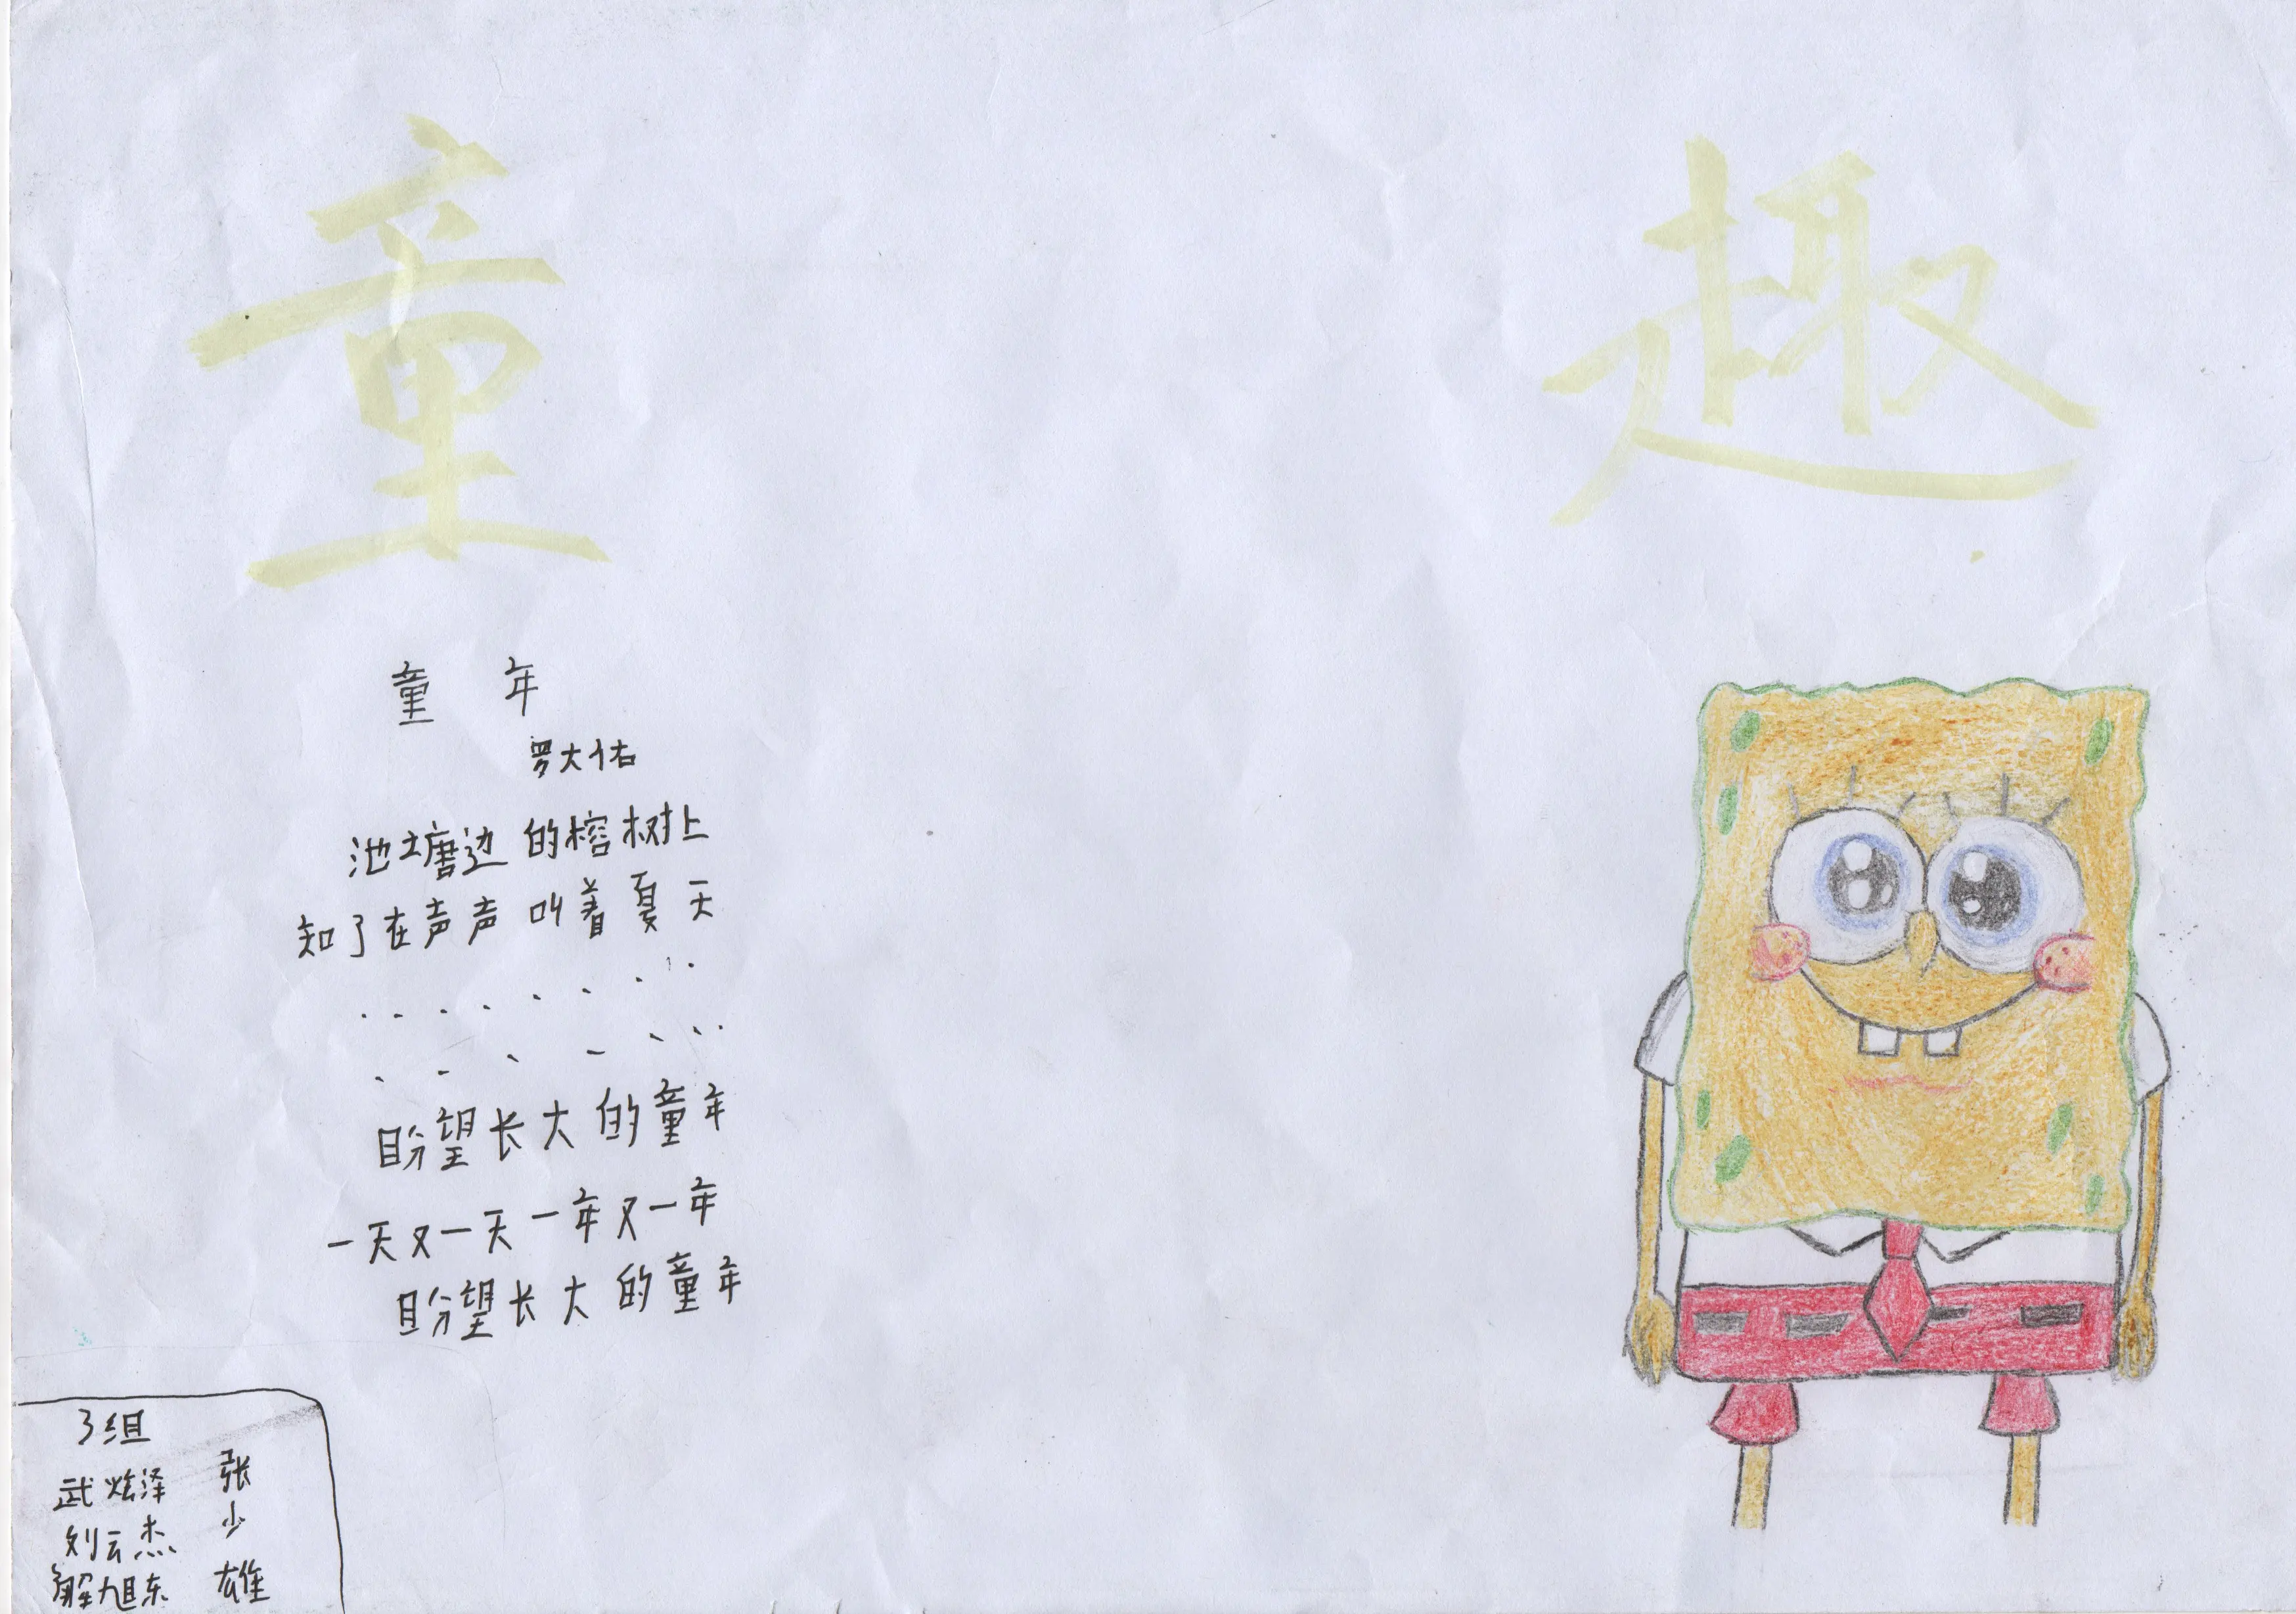 童趣
童年
罗大佑
池塘边的榕树上
知了在声声叫着夏天
. . . . . . . .
. . . . . . .
盼望长大的童年
一天又一天一年又一年
盼望长大的童年
3组
武炫泽
刘云杰
解旭东
张少雄